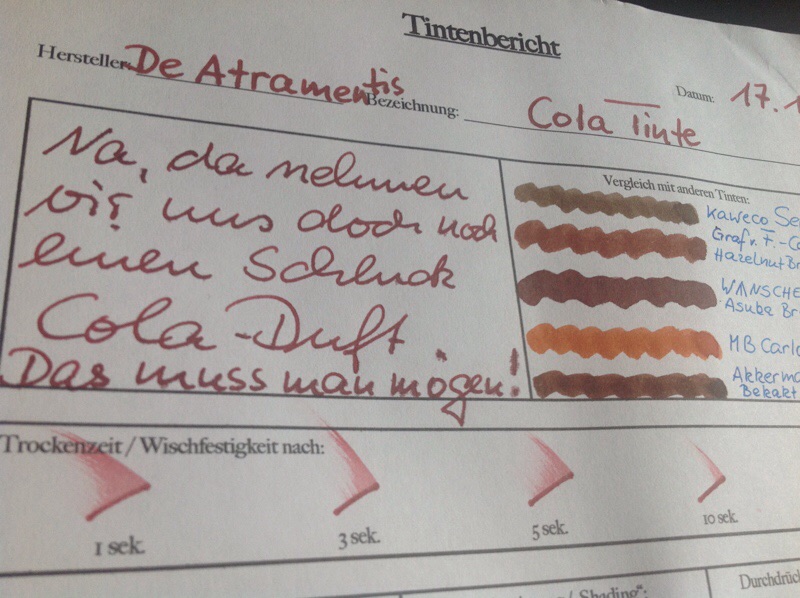 Tintenbericht
Hersteller: De Atramentis
Bezeichnung: Cola Tinte
Datum: 17.1
Na, da nehmen
wir uns doch noch
einen Schluck
Cola-Duft.
Das muss man mögen!
Vergleich mit anderen Tinten:
Kaweco Se
Graf v. F.-C
Hazelnut Br
WANSCHE
Asuba Br
MB Carlo
Akkerma
Bekakt
Trockenzeit / Wischfestigkeit nach:
1 sek.
3 sek.
5 sek.
10 sek.
/ Shading":
Durchdrüc